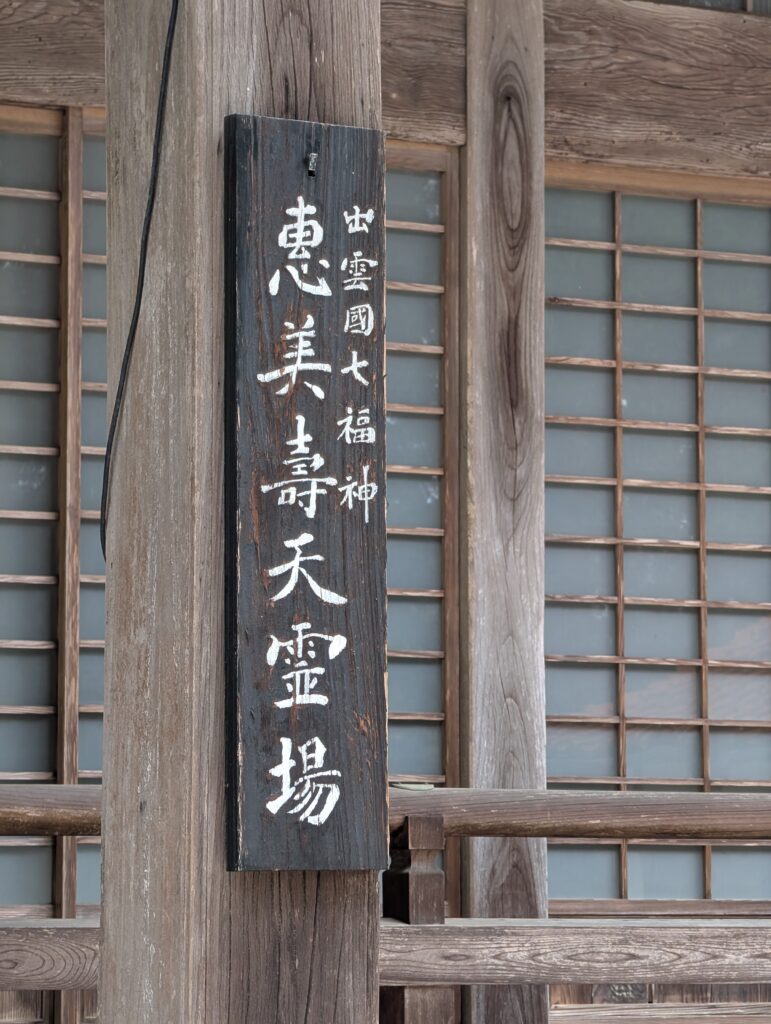 出雲國七福神
惠美壽天霊場